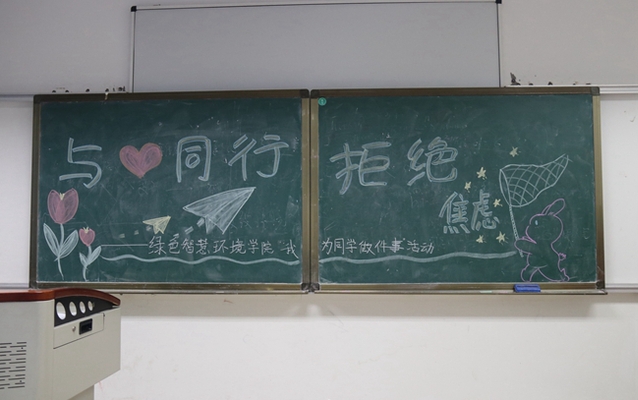 与同行 拒绝
焦虑
绿色智慧环境学院“我为同学做件事活动